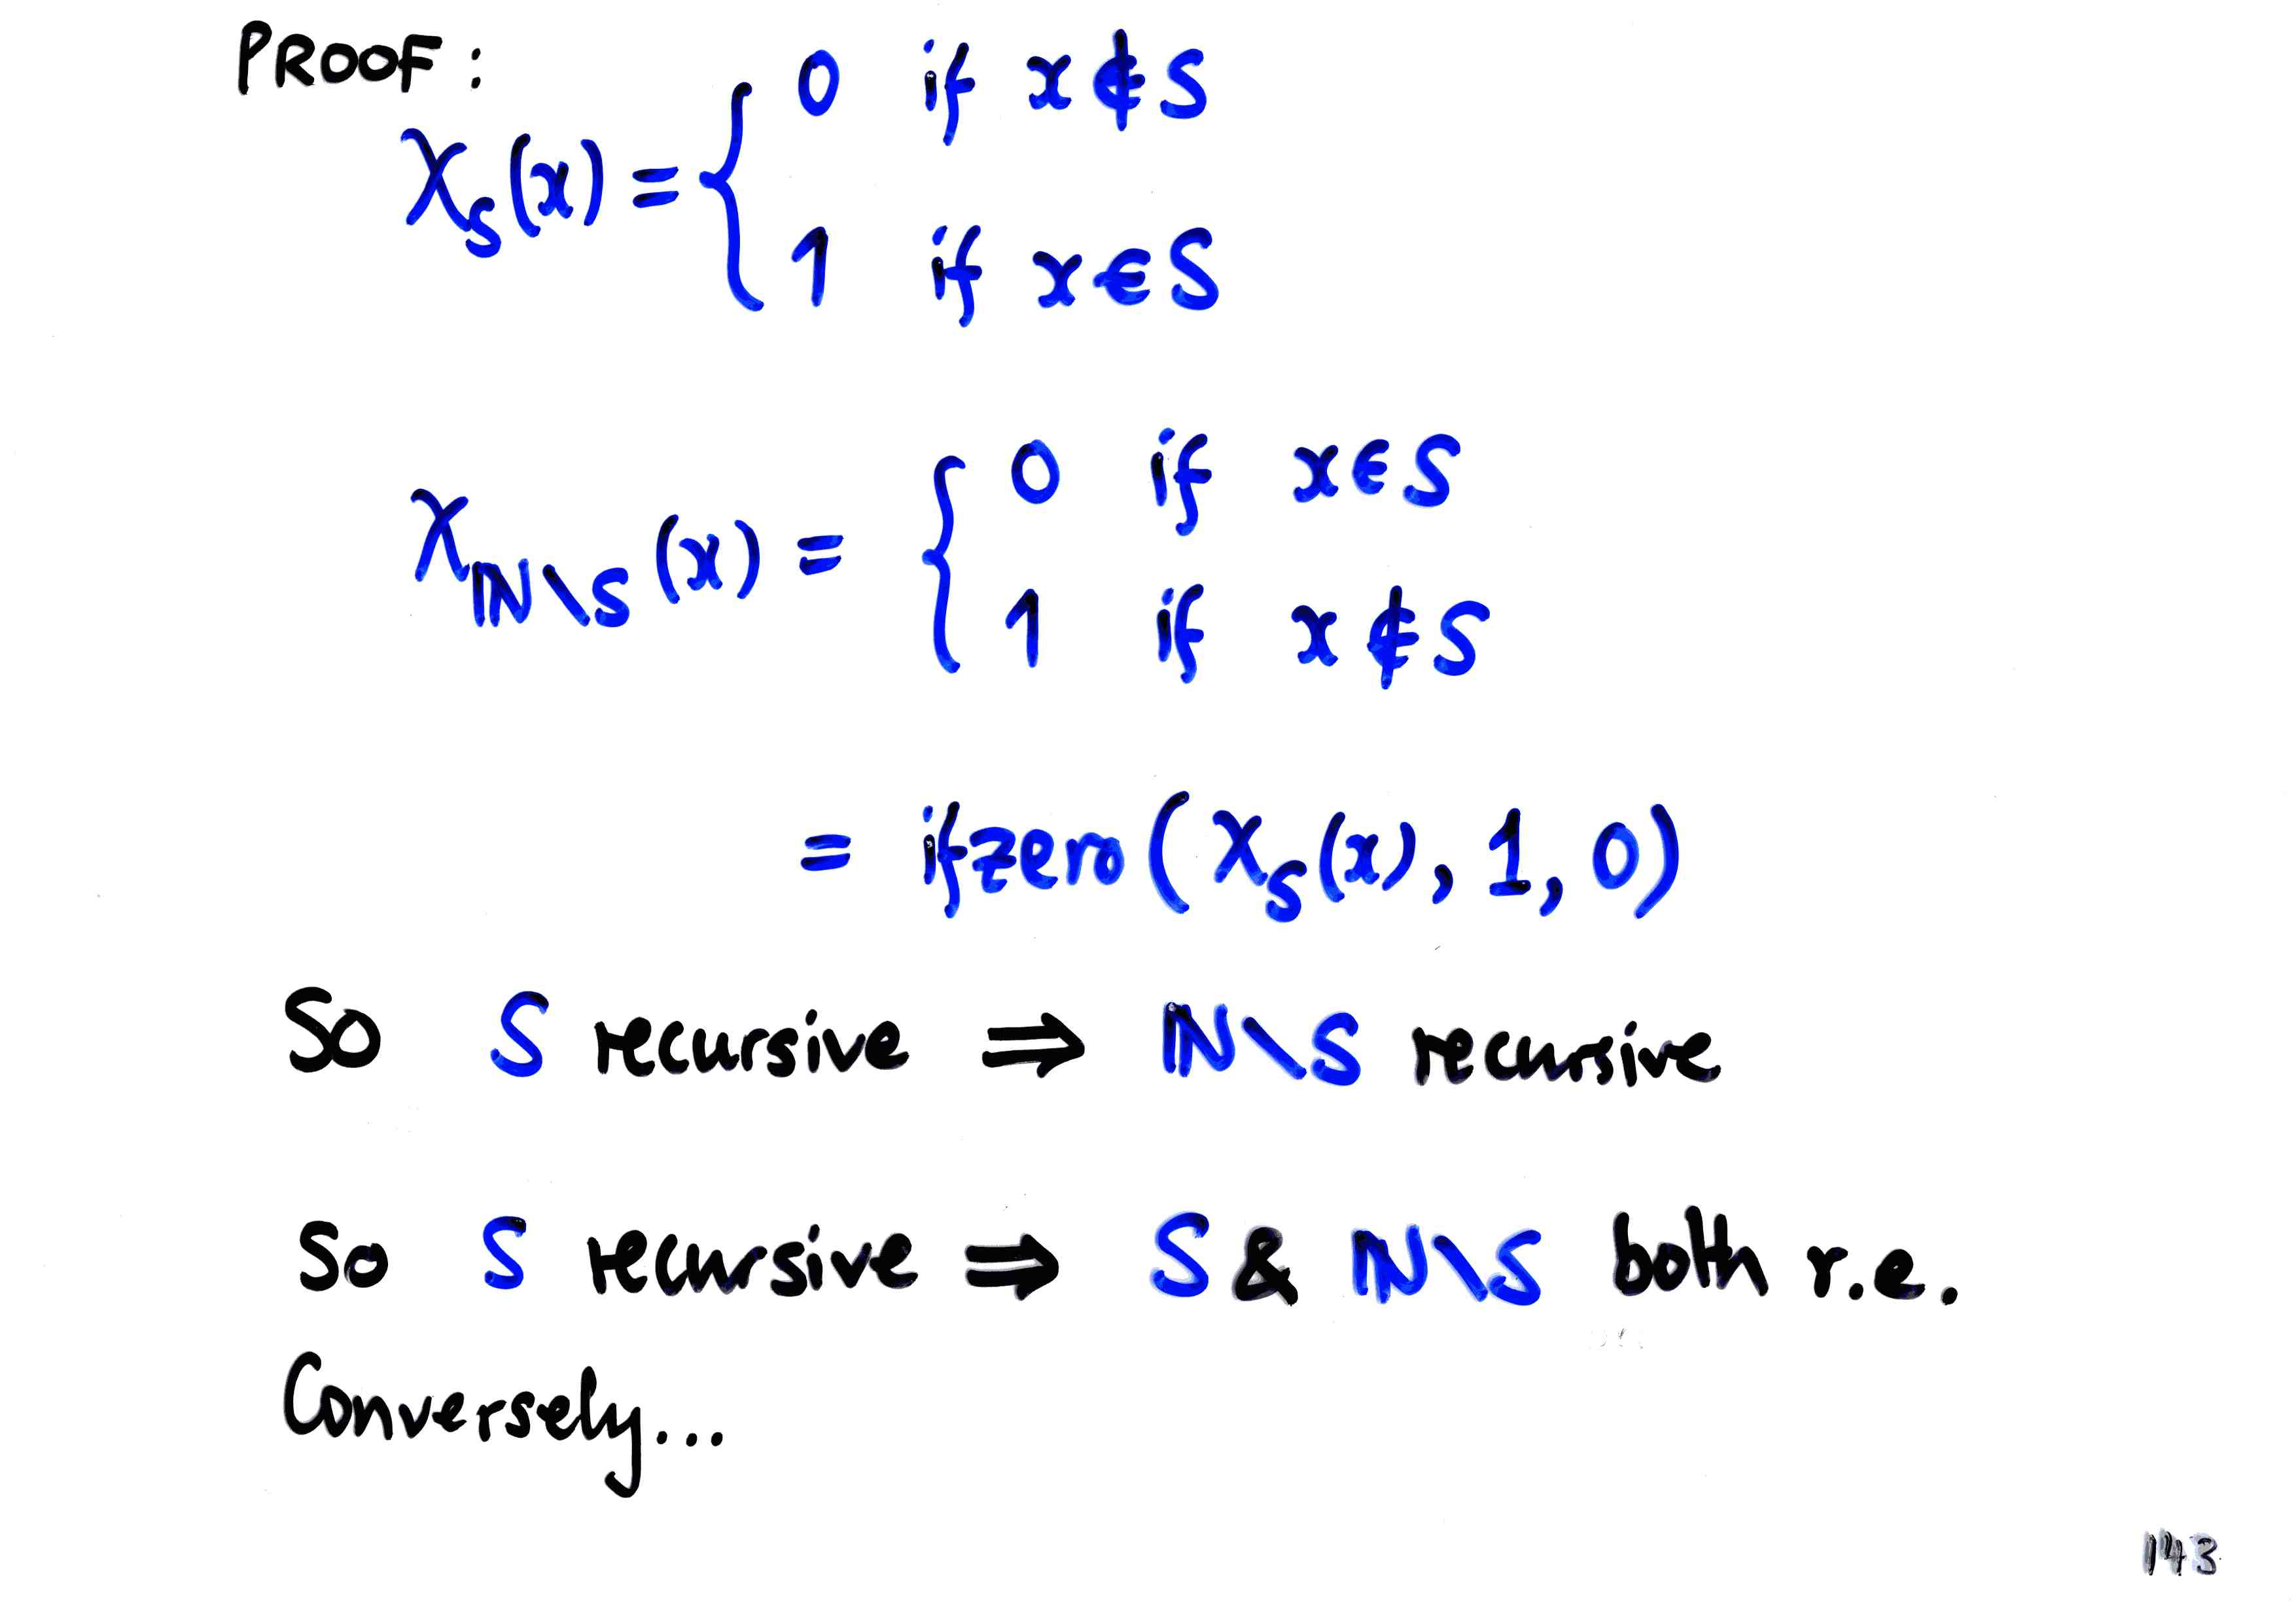 PROOF:
χ_S(x) = { 0 if x∉S
1 if x∈S
χ_ℕ\S(x) = { 0 if x∈S
1 if x∉S
= ifzero(χ_S(x), 1, 0)
So S recursive ⇒ ℕ\S recursive
So S recursive ⇒ S & ℕ\S both r.e.
Conversely...
143